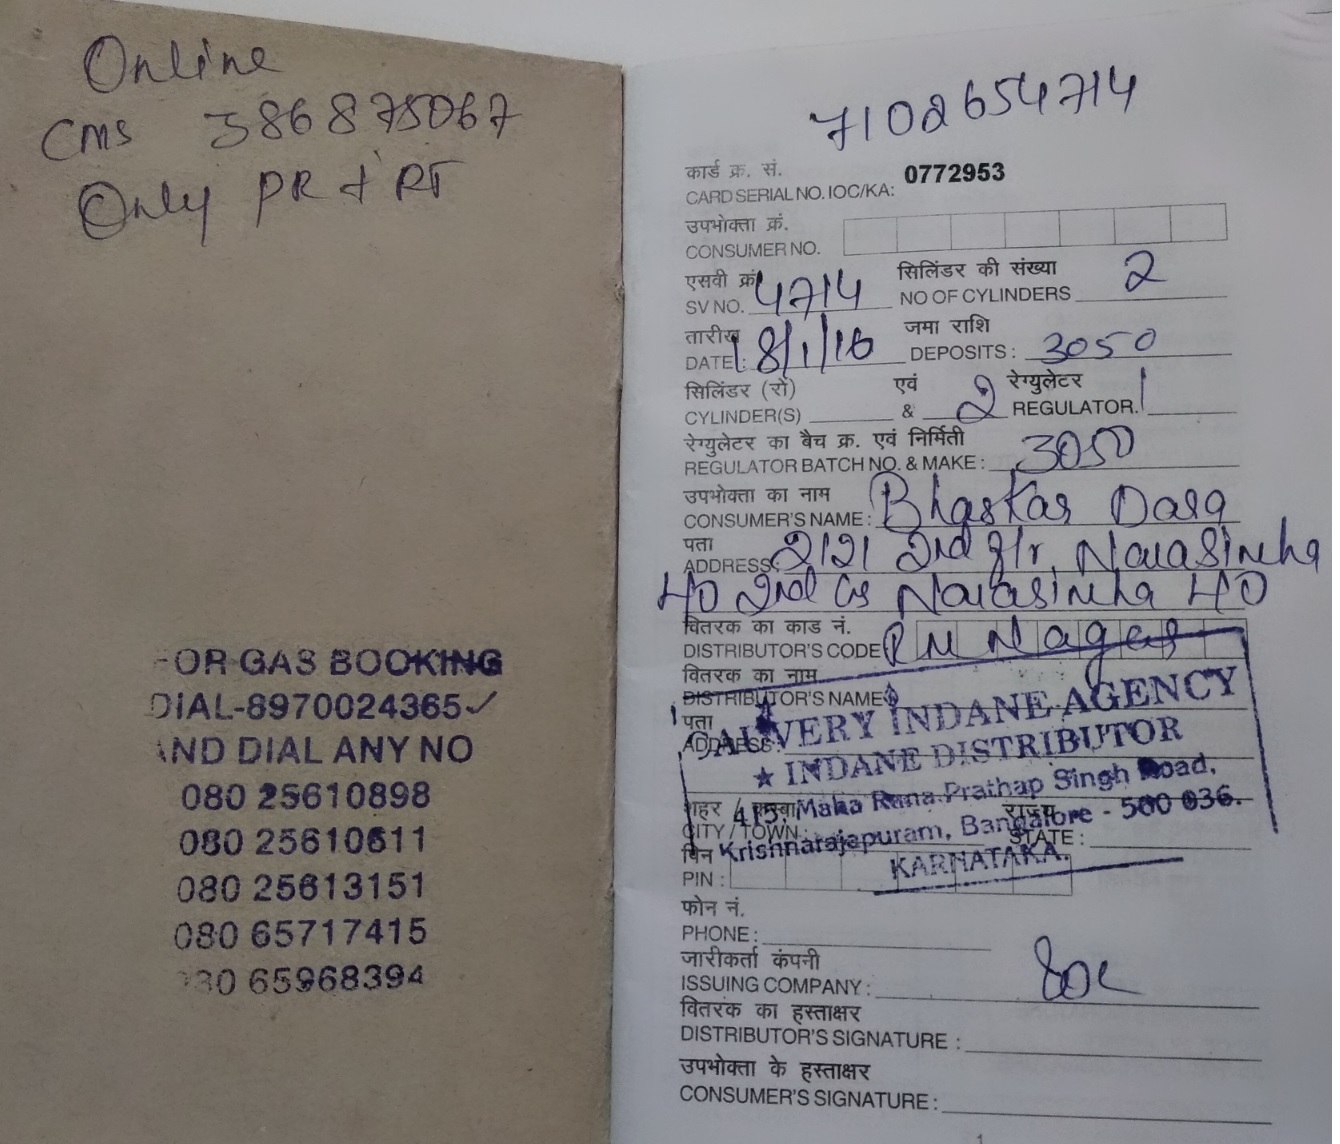 Online
CMS 386875067
Only PR + RT
OR GAS BOOKING
DIAL-8970024365✓
ND DIAL ANY NO
080 25610898
080 25610611
080 25613151
080 65717415
30 65968394
7102654714
कार्ड क्र. सं.
CARD SERIAL NO. IOC/KA: 0772953
उपभोक्ता क्रं.
CONSUMER NO.
एसवी क्रं सिलिंडर की संख्या
SV NO. 4714 NO OF CYLINDERS 2
तारीख जमा राशि
DATE: 18/1/16 DEPOSITS: 3050
सिलिंडर (रों) एवं रेग्युलेटर
CYLINDER(S) & 2 REGULATOR. 1
रेग्युलेटर का बैच क्र. एवं निर्मिती
REGULATOR BATCH NO. & MAKE: 3050
उपभोक्ता का नाम
CONSUMER'S NAME: Bhaskar
पता
ADDRESS: 2121 2nd Narasinha
2nd Narasinha
वितरक का काड नं.
DISTRIBUTOR'S CODE Nagar
वितरक का नाम
DISTRIBUTOR'S NAME
पता
ADDRESS:
CAUVERY INDANE AGENCY
★ INDANE DISTRIBUTOR
415, Maha Rana Prathap Singh Road,
Krishnarajapuram, Bangalore - 500 036.
KARNATAKA.
शहर / कस्बा राज्य
CITY / TOWN: STATE:
पिन
PIN:
फोन नं.
PHONE:
जारीकर्ता कंपनी
ISSUING COMPANY:
वितरक का हस्ताक्षर
DISTRIBUTOR'S SIGNATURE:
उपभोक्ता के हस्ताक्षर
CONSUMER'S SIGNATURE:
1